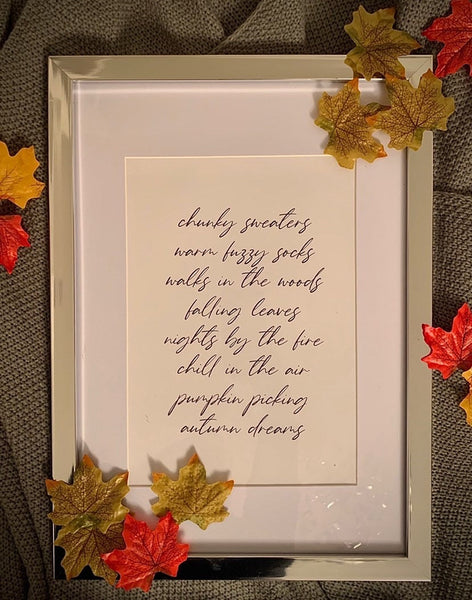 chunky sweaters
warm fuzzy socks
walks in the woods
falling leaves
nights by the fire
chill in the air
pumpkin picking
autumn dreams